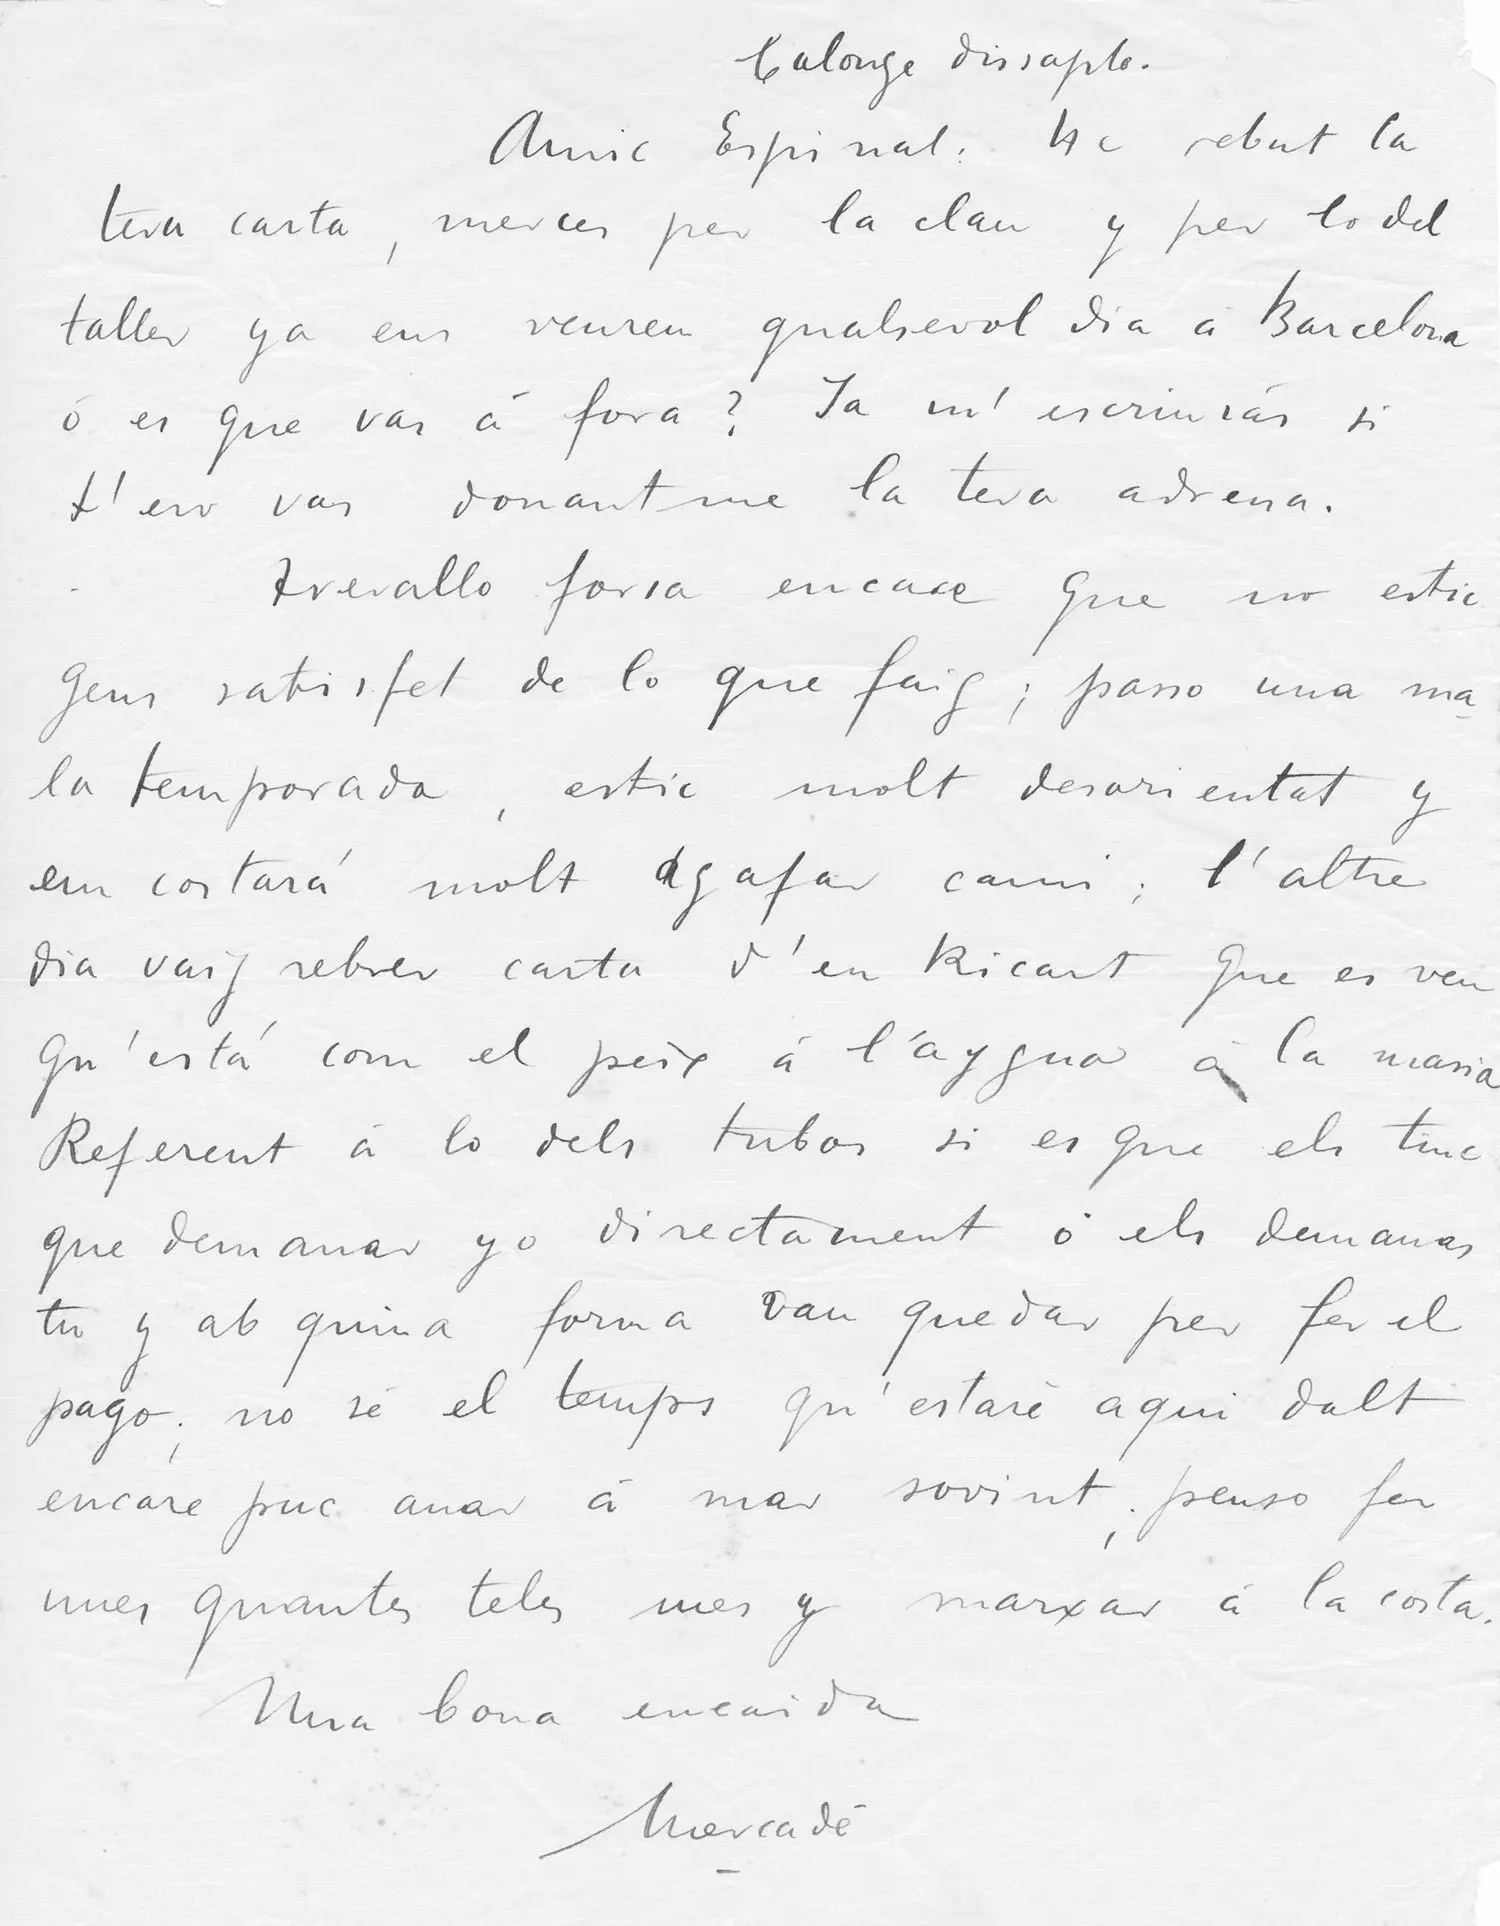 Calonge dissapte.
Amic Espinal: He rebut la
teva carta, merces per la clau y per lo del
taller ya ens veurem qualsevol dia á Barcelona
ó es que vas á fora? Ja m'escriurás si
t'en vas donantme la teva adresa.
Trevallo forsa encare que no estic
gens satisfet de lo que faig; passo una ma-
la temporada, estic molt desorientat y
em costará molt agafar cami; l'altre
dia vaig rebrer carta d'en Ricart que es veu
qu'está com el peix á l'aygua á la masia
Referent á lo dels tubos si es que els tinc
que demanar yo directament ó els demanas
tu y ab quina forma vau quedar per fer el
pago; no sé el temps qu'estaré aqui dalt
encare puc anar á mar sovint; penso fer
unes quantes teles mes y marxar á la costa.
Una bona encaida
Mercadé